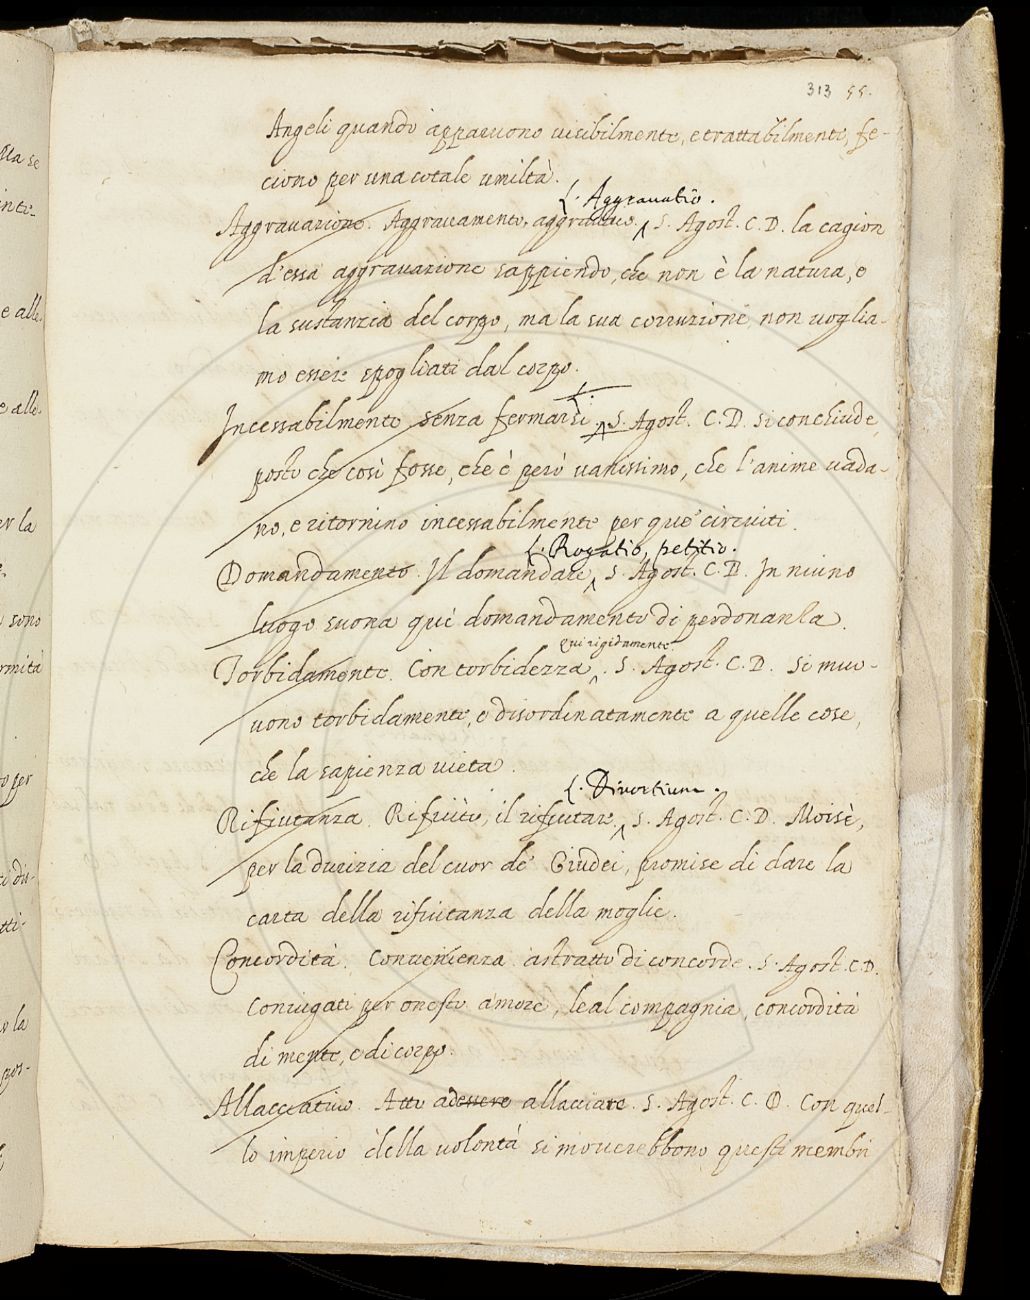 313 55.
Angeli quando apparvono visibilmente, e trattabilmente, fe-
ciono per una cotale umiltà.
L. Aggravatio.
Aggravazione. Aggravamento, aggravare, S. Agost. C. D. la cagion
d'essa aggravazione sappiendo, che non è la natura, e
la sustanzia del corpo, ma la sua corruzione, non voglia-
mo essere spogliati dal corpo.
Incessabilmente senza fermarsi. S. Agost. C. D. Si conchiude,
posto che così fosse, che è però vanissimo, che l'anime vada-
no, e ritornino incessabilmente per que' circuiti.
L. Rogatio, petitio.
Domandamento. Il domandare, S. Agost. C. D. In niuno
luogo suona qui domandamento di perdonanza.
qui rigidamente
Torbidamente. Con torbidezza. S. Agost. C. D. Si muo-
vono torbidamente, e disordinatamente a quelle cose,
che la sapienza vieta.
L. Divortium.
Rifiutanza. Rifiuto, il rifiutare, S. Agost. C. D. Moisè,
per la durizia del cuor de' Giudei, promise di dare la
carta della rifiutanza della moglie.
Concordità. Convenienza astratto di concorde. S. Agost. C. D.
Coniugati per onesto amore, leal compagnia, concordità
di mente, e di corpo.
Allacciativo. Atto ad essere allacciare. S. Agost. C. D. Con quel-
lo imperio della volontà si moverebbono questi membri